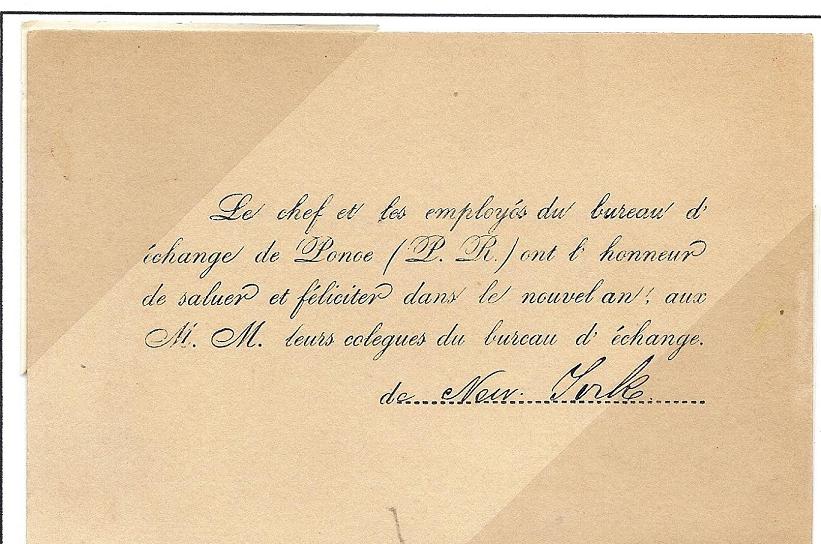 Le chef et les employés du bureau d'
échange de Ponce (P. R.) ont l' honneur
de saluer et féliciter dans le nouvel an, aux
M. M. leurs colegues du bureau d' échange.
de New York